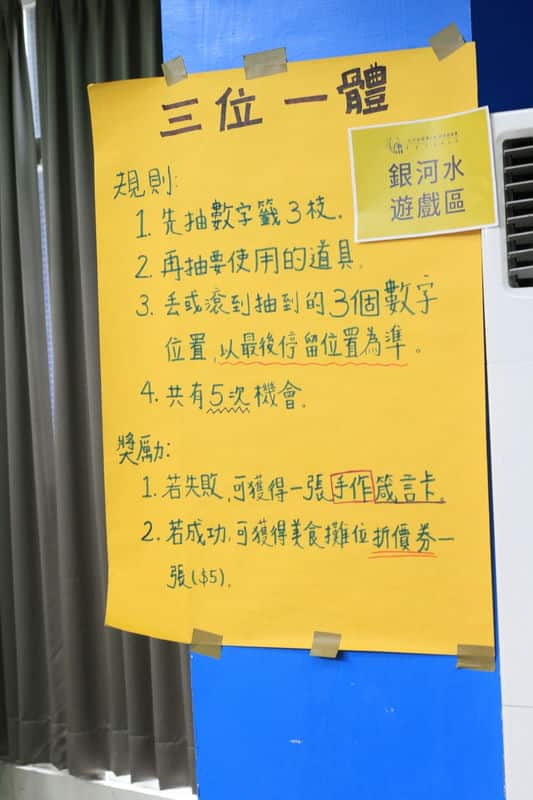 三位一體
銀河水
遊戲區
規則:
1. 先抽數字籤3枝.
2. 再抽要使用的道具.
3. 丟或滾到抽到的3個數字
位置,以最後停留位置為準。
4. 共有5次機會.
獎勵:
1. 若失敗,可獲得一張手作箴言卡.
2. 若成功,可獲得美食攤位折價券一
張($5).